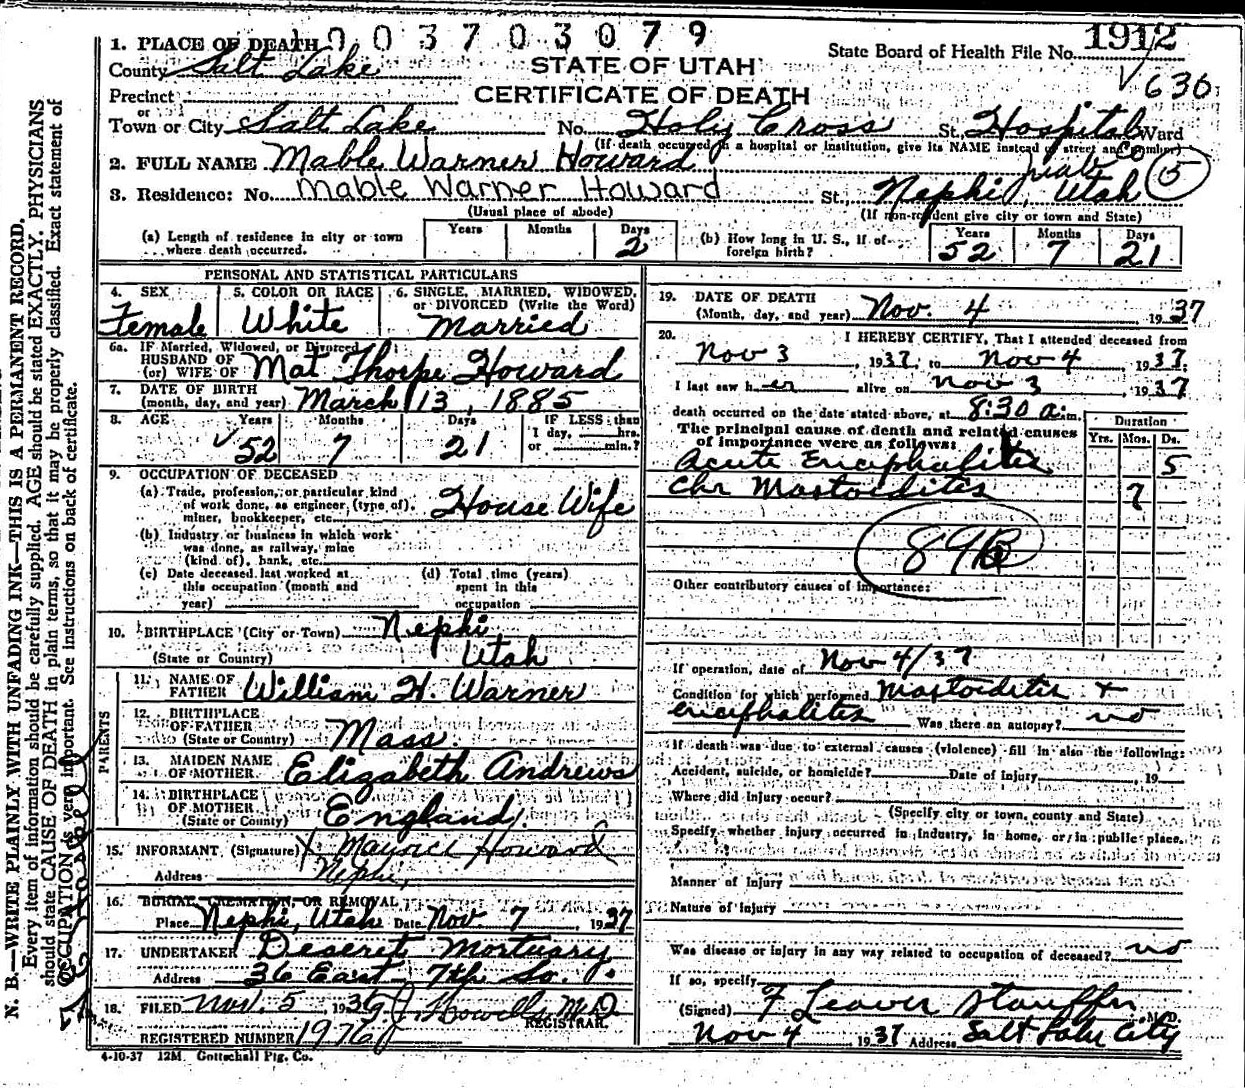 1003703079
1912
State Board of Health File No.
636
1. PLACE OF DEATH
County Salt Lake
STATE OF UTAH
Precinct
CERTIFICATE OF DEATH
or
Town or City Salt Lake No. Holy Cross St., Hospital Ward
(If death occurred in a hospital or institution, give its NAME instead of street and number)
2. FULL NAME Mable Warner Howard
Juab Co 5
3. Residence: No. Mable Warner Howard St., Nephi, Utah
(Usual place of abode) (If non-resident give city or town and State)
(a) Length of residence in city or town where death occurred. Years Months Days 2
(b) How long in U. S., if of foreign birth? Years 52 Months 7 Days 21
PERSONAL AND STATISTICAL PARTICULARS
4. SEX Female
5. COLOR OR RACE White
6. SINGLE, MARRIED, WIDOWED, or DIVORCED (Write the Word) Married
6a. If Married, Widowed, or Divorced
HUSBAND OF
(or) WIFE OF Mat Thorpe Howard
7. DATE OF BIRTH
(month, day, and year) March 13, 1885
8. AGE Years 52 Months 7 Days 21 IF LESS than
1 day, hrs.
or min.?
9. OCCUPATION OF DECEASED
(a) Trade, profession, or particular kind
of work done, as engineer (type of),
miner, bookkeeper, etc. House Wife
(b) Industry or business in which work
was done, as railway, mine
(kind of), bank, etc.
(c) Date deceased last worked at
this occupation (month and
year)
(d) Total time (years)
spent in this
occupation
10. BIRTHPLACE (City or Town) Nephi
(State or Country) Utah
PARENTS
11. NAME OF
FATHER William H. Warner
12. BIRTHPLACE
OF FATHER
(State or Country) Mass.
13. MAIDEN NAME
OF MOTHER Elizabeth Andrews
14. BIRTHPLACE
OF MOTHER
(State or Country) England
15. INFORMANT (Signature) X Maurice Howard
Address Nephi,
16. BURIAL, CREMATION, OR REMOVAL
Place Nephi, Utah Date Nov. 7, 1937
17. UNDERTAKER Deseret Mortuary
Address 36 East 7th So.
18. FILED Nov. 5, 193 Howells M D
REGISTRAR.
REGISTERED NUMBER 1976
4-10-37 12M. Gottschall Ptg. Co.
19. DATE OF DEATH
(Month, day, and year) Nov. 4 1937
20. I HEREBY CERTIFY, That I attended deceased from
Nov 3, 1937, to Nov 4, 1937.
I last saw her alive on Nov 3, 1937
death occurred on the date stated above, at 8:30 a.m.
The principal cause of death and related causes
of importance were as follows:
Duration
Yrs. Mos. Ds.
Acute Encephalitis 5
Chr Mastoiditis 7
89B
Other contributory causes of importance:
If operation, date of Nov 4/37
Condition for which performed Mastoiditis +
encephalites Was there an autopsy? no
If death was due to external causes (violence) fill in also the following:
Accident, suicide, or homicide? Date of Injury , 19
Where did injury occur?
(Specify city or town, county and State)
Specify whether injury occurred in Industry, in home, or in public place.
Manner of Injury
Nature of Injury
Was disease or injury in any way related to occupation of deceased? no
If so, specify
(Signed) F Leaver Stauffer M.D.
Nov 4 1937 Address Salt Lake City
N. B.—WRITE PLAINLY WITH UNFADING INK—THIS IS A PERMANENT RECORD.
Every item of information should be carefully supplied. AGE should be stated EXACTLY. PHYSICIANS
should state CAUSE OF DEATH in plain terms, so that it may be properly classified. Exact statement of
OCCUPATION is very important. See instructions on back of certificate.